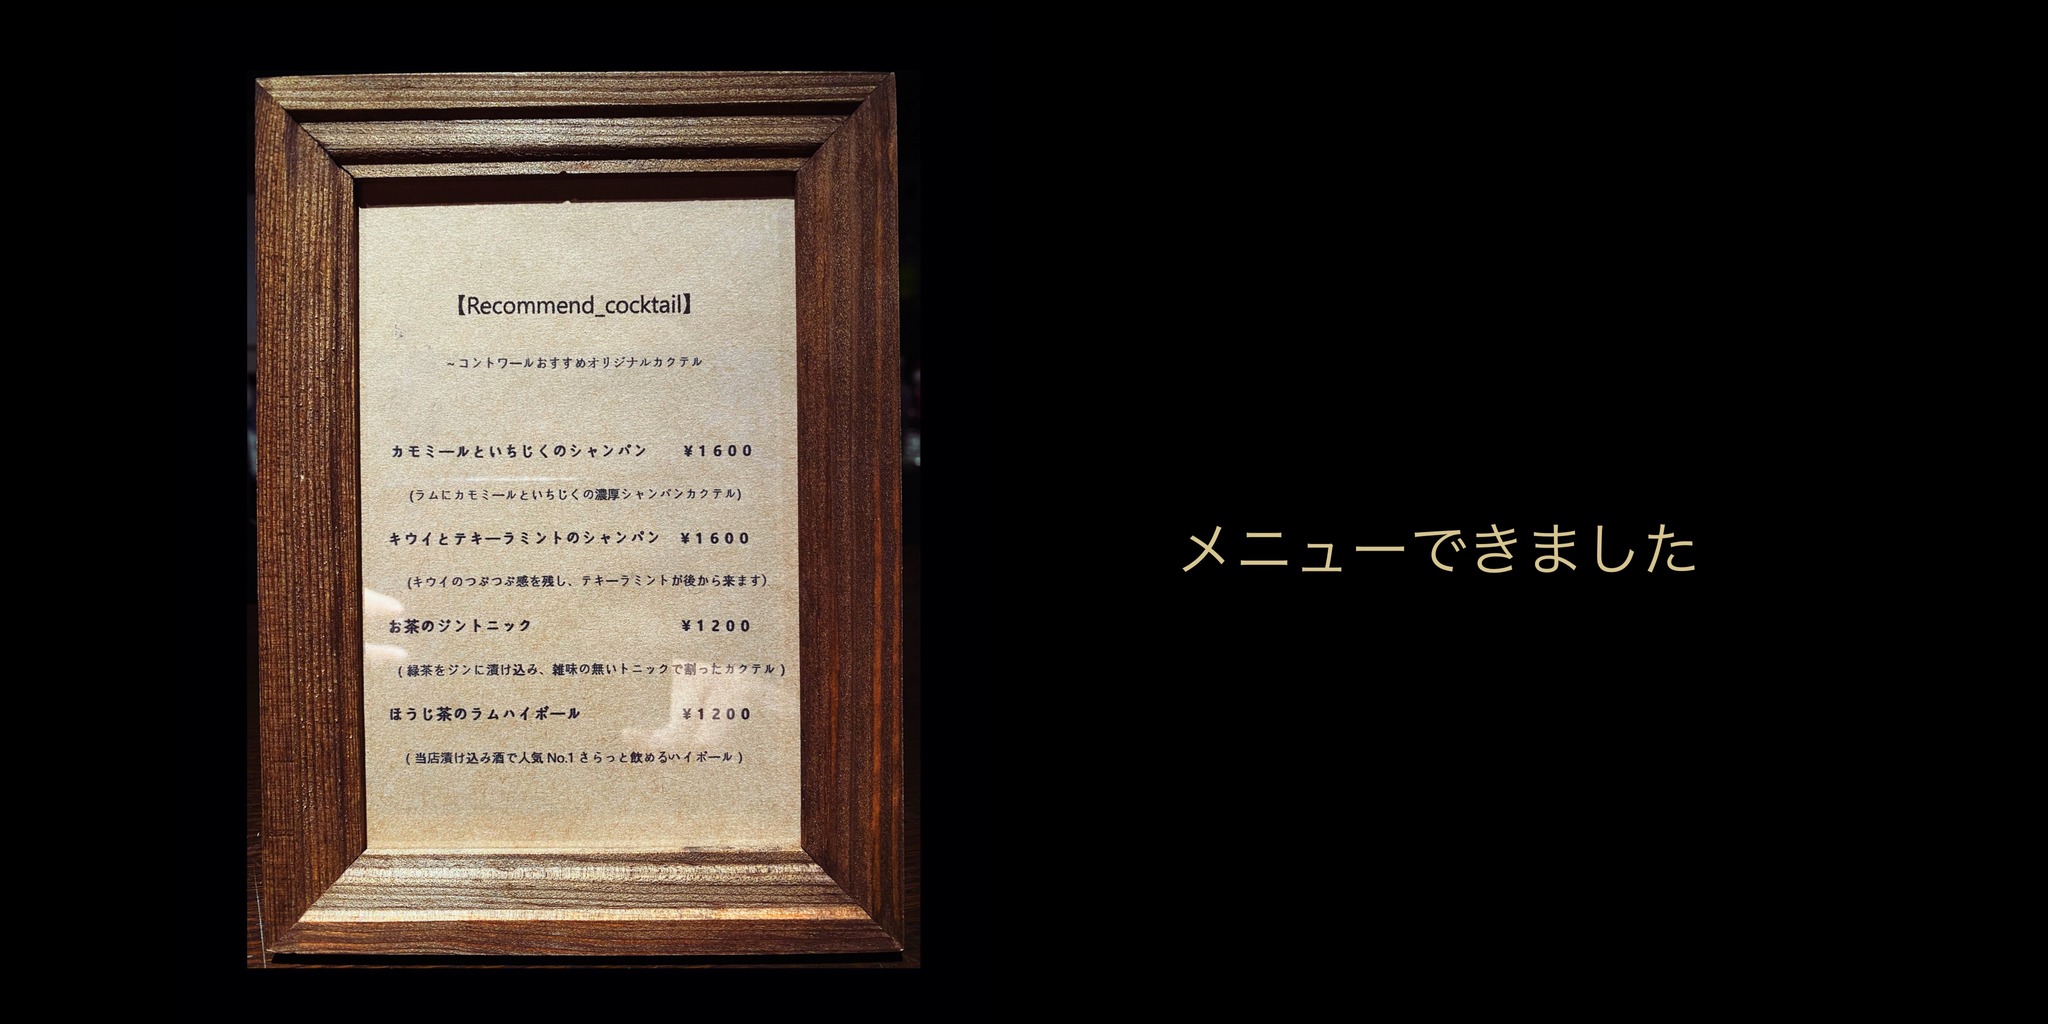 【Recommend_cocktail】
~コントワールおすすめオリジナルカクテル
カモミールといちじくのシャンパン ¥1600
(ラムにカモミールといちじくの濃厚シャンパンカクテル)
キウイとテキーラミントのシャンパン ¥1600
(キウイのつぶつぶ感を残し、テキーラミントが後から来ます)
お茶のジントニック ¥1200
(緑茶をジンに漬け込み、雑味の無いトニックで割ったカクテル)
ほうじ茶のラムハイボール ¥1200
(当店漬け込み酒で人気No.1さらっと飲めるハイボール)
メニューできました